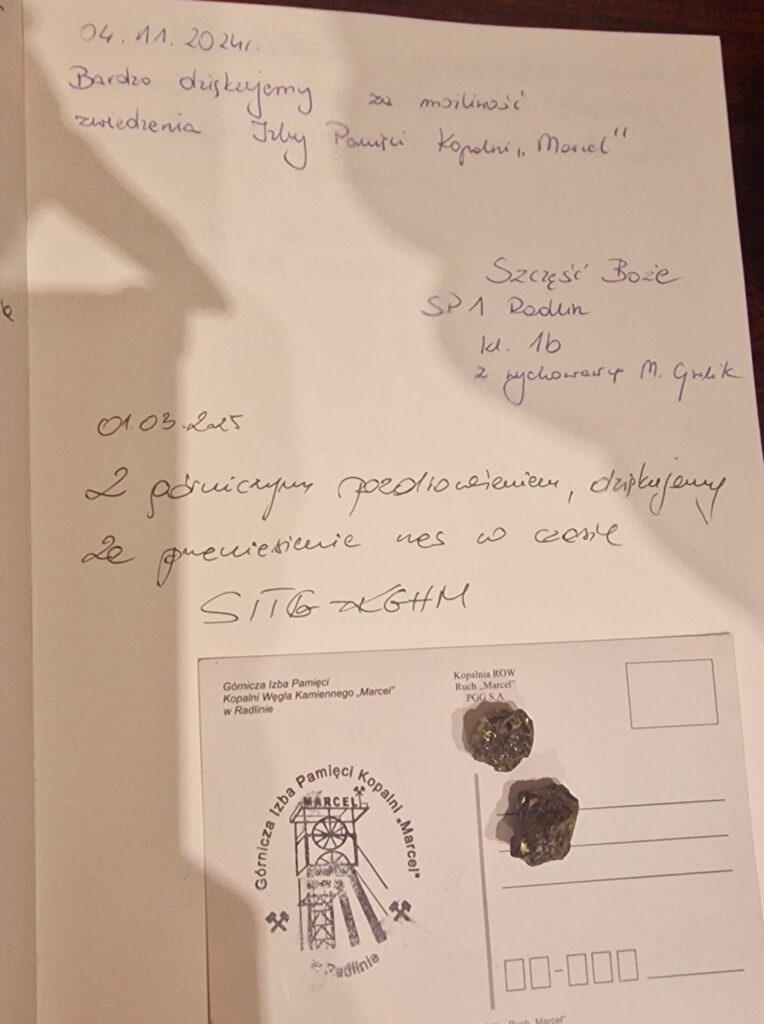 04.11.2024r.
Bardzo dziękujemy za możliwość
zwiedzenia Izby Pamięci Kopalni „Marcel"
Szczęść Boże
SP 1 Radlin
kl. 1b
z wychowawcą M.
01.03.2025
Z górniczym pozdrowieniem, dziękujemy
za przeniesienie nas w czasie
SITG KGHM
Górnicza Izba Pamięci
Kopalni Węgla Kamiennego „Marcel"
w Radlinie
Kopalnia ROW
Ruch „Marcel"
PGG S.A.
Górnicza Izba Pamięci Kopalni „Marcel"
MARCEL
w Radlinie
Ruch „Marcel"